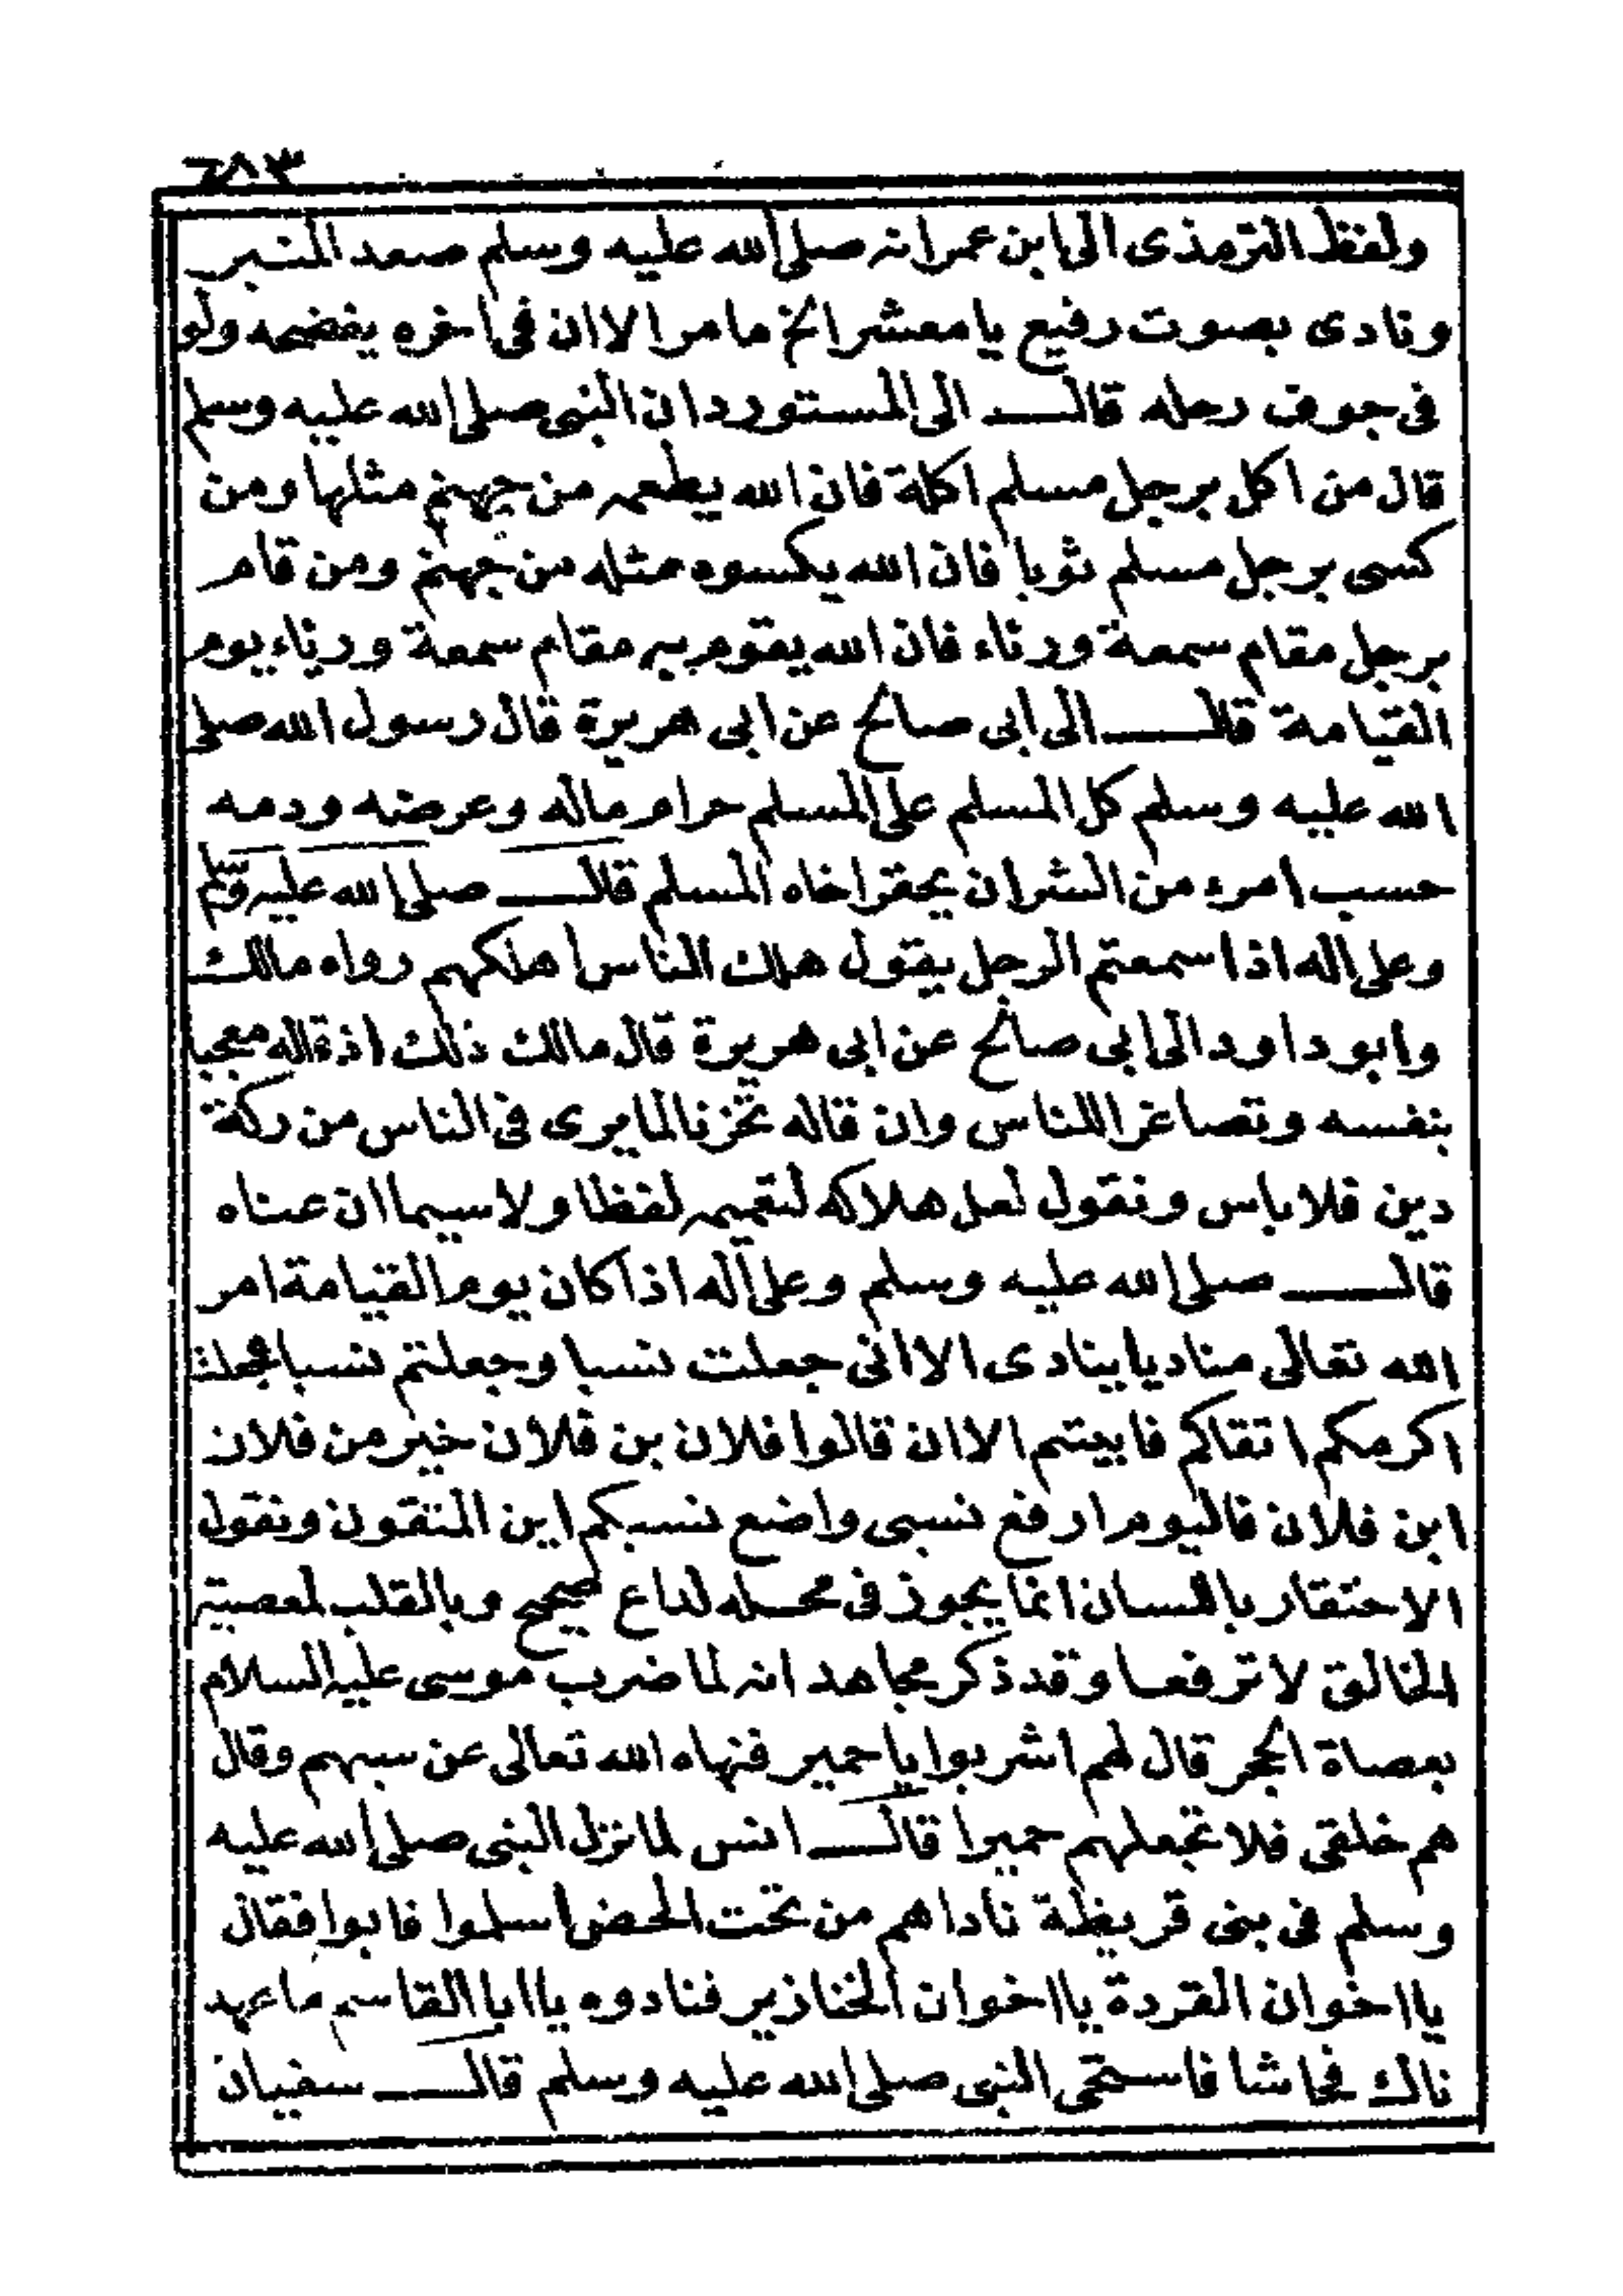 ٦٨٣
ولفظ الترمذى الى ابن عمر انه صلى الله عليه وسلم صعد المنبر
ونادى بصوت رفيع يا معشر الخ ما مر الا ان فى اخره يفضحه ولو
فى جوف رحله قال الى المستورد ان النبى صلى الله عليه وسلم
قال من اكل برجل مسلم اكلة فان الله يطعمه من جهنم مثلها ومن
كسى برجل مسلم ثوبا فان الله يكسوه مثله من جهنم ومن قام
برجل مقام سمعة ورئاء فان الله يقوم به مقام سمعة ورياء يوم
القيامة قال الى ابى صالح عن ابى هريرة قال رسول الله صلى
الله عليه وسلم كل المسلم على المسلم حرام ماله وعرضه ودمه
حسب امرء من الشر ان يحقر اخاه المسلم قال صلى الله عليه وسلم
وعلى اله اذا سمعتم الرجل يقول هلك الناس اهلكهم رواه مالك
وابو داود الى ابى صالح عن ابى هريرة قال مالك ذلك اذ قاله معجبا
بنفسه وتصاغرا للناس وان قاله تحزنا لما يرى فى الناس من ركة
دين فلا باس ونقول لعل هلاكه لتعميمه لفظا ولا سيما ان عناه
قال صلى الله عليه وسلم وعلى اله اذا كان يوم القيامة امر
الله تعالى مناديا ينادى الا انى جعلت نسبا وجعلتم نسبا فجعلت
اكرمكم اتقاكم فابيتم الا ان قالوا فلان بن فلان خير من فلان
ابن فلان فاليوم ارفع نسبى واضع نسبكم اين المتقون ونقول
الاحتقار باللسان انما يجوز فى محله لداع صحيح وبالقلب لمعصية
الخالق لا ترفعا وقد ذكر مجاهد انه لما ضرب موسى عليه السلام
بعصاة الحجر قال لهم اشربوا يا حمير فنهاه الله تعالى عن سبهم وقال
هم خلقى فلا تجعلهم حميرا قال انس لما نزل النبى صلى الله عليه
وسلم فى بنى قريظة ناداهم من تحت الحضن اسلموا فابوا فقال
يا اخوان القردة يا اخوان الخنازير فنادوه يا ابا القاسم ما عهد
ناك فحاشا فاستحى النبى صلى الله عليه وسلم قال سفيان